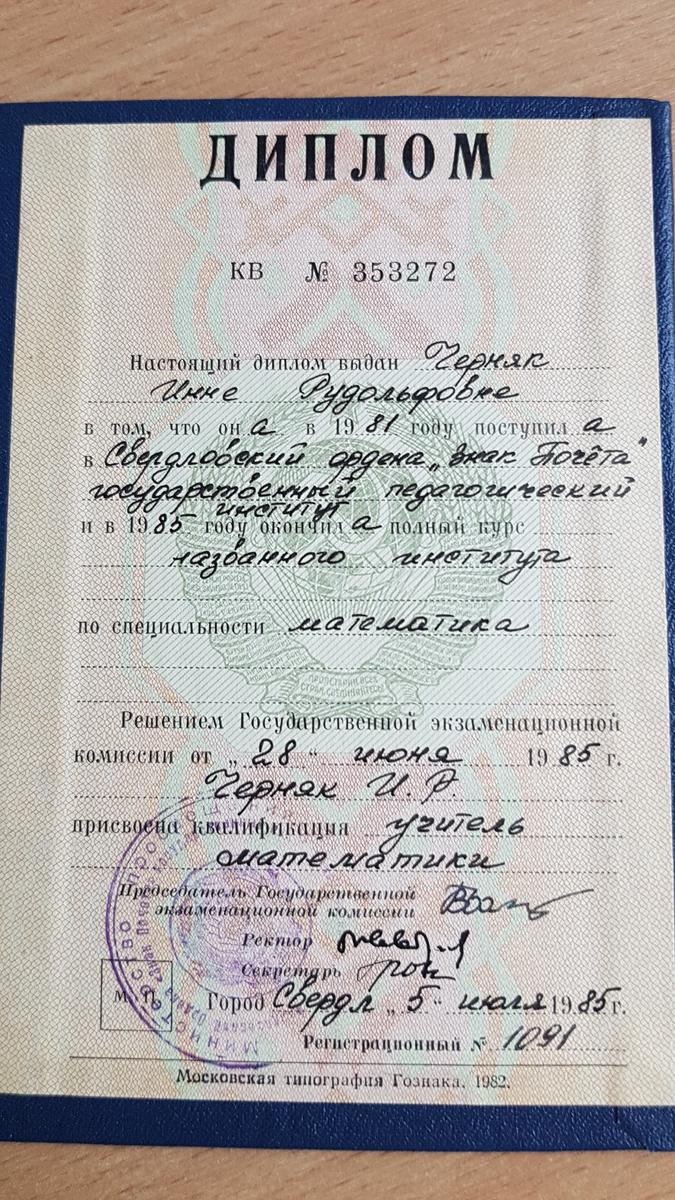 ДИПЛОМ
КВ № 353272
Настоящий диплом выдан Черняк
Инне Рудольфовне
в том, что он а в 19 81 году поступил а
в Свердловский ордена „Знак Почёта"
государственный педагогический
институт
и в 19 85 году окончил а полный курс
названного института
по специальности математика
Решением Государственной экзаменационной
комиссии от „ 28 " июня 19 85 г.
Черняк И. Р
присвоена квалификация учитель
математики
Председатель Государственной
экзаменационной комиссии
Ректор
Секретарь
М. П.
Город Свердл „ 5 " июля 19 85 г.
Регистрационный № 1091
Московская типография Гознака. 1982.